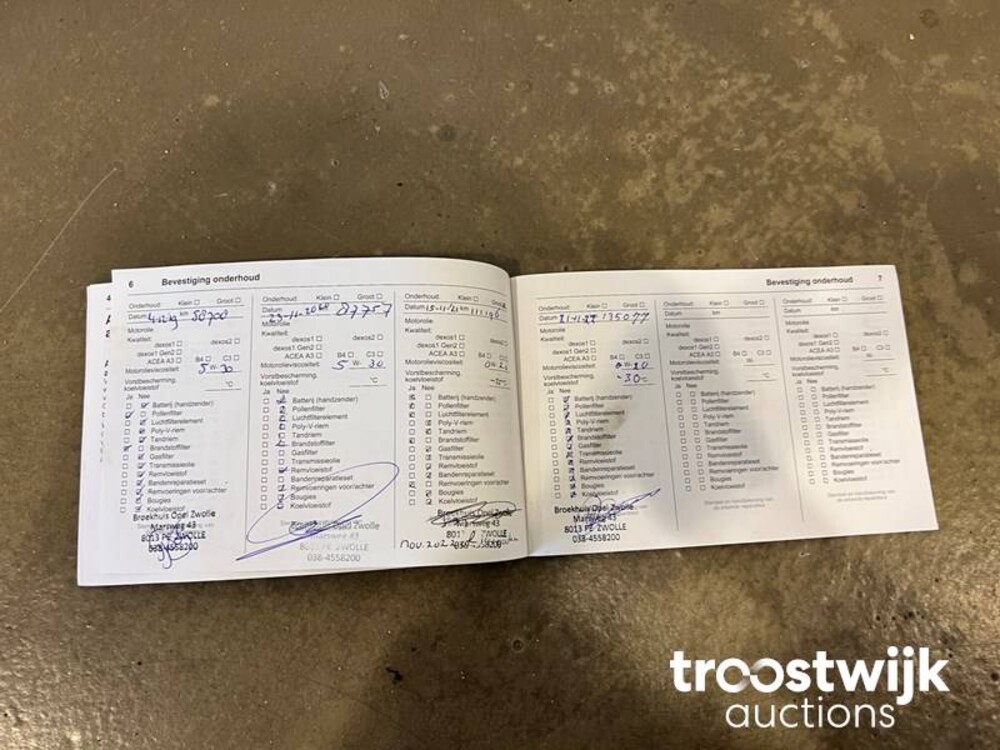 6 Bevestiging onderhoud
Onderhoud: Klein Groot
Datum km 58700
Motorolie
Kwaliteit:
dexos1
dexos1 Gen2 dexos2
ACEA A3 B4 C3
Motorolieviscositeit: 5 W- 30
Vorstbescherming,
koelvloeistof °C
Ja Nee
Batterij (handzender)
Pollenfilter
Luchtfilterelement
Poly-V-riem
Tandriem
Brandstoffilter
Gasfilter
Transmissieolie
Remvloeistof
Bandenreparatieset
Remvoeringen voor/achter
Bougies
Koelvloeistof
Broekhuis Opel Zwolle
Marsweg 43
8013 PE ZWOLLE
038-4558200
Onderhoud: Klein Groot
Datum 23-11-20 km 87757
Motorolie
Kwaliteit:
dexos1
dexos1 Gen2 dexos2
ACEA A3 B4 C3
Motorolieviscositeit: 5 W- 30
Vorstbescherming,
koelvloeistof °C
Ja Nee
Batterij (handzender)
Pollenfilter
Luchtfilterelement
Poly-V-riem
Tandriem
Brandstoffilter
Gasfilter
Transmissieolie
Remvloeistof
Bandenreparatieset
Remvoeringen voor/achter
Bougies
Koelvloeistof
Opel Zwolle
Marsweg 43
8013 PE ZWOLLE
038-4558200
Onderhoud: Klein Groot
Datum 15-11-21 km
Motorolie
Kwaliteit:
dexos1
dexos1 Gen2 dexos2
ACEA A3 B4 C3
Motorolieviscositeit: 0 W-
Vorstbescherming,
koelvloeistof °C
Ja Nee
Batterij (handzender)
Pollenfilter
Luchtfilterelement
Poly-V-riem
Tandriem
Brandstoffilter
Gasfilter
Transmissieolie
Remvloeistof
Bandenreparatieset
Remvoeringen voor/achter
Bougies
Koelvloeistof
Broekhuis Opel Zwolle
Marsweg 43
8013 ZWOLLE
nov. 2022
Bevestiging onderhoud 7
Onderhoud: Klein Groot
Datum 21-11-22 135077
Motorolie
Kwaliteit:
dexos1
dexos1 Gen2 dexos2
ACEA A3 B4 C3
Motorolieviscositeit: 0 W-20
Vorstbescherming,
koelvloeistof -30 °C
Ja Nee
Batterij (handzender)
Pollenfilter
Luchtfilterelement
Poly-V-riem
Tandriem
Brandstoffilter
Gasfilter
Transmissieolie
Remvloeistof
Bandenreparatieset
Remvoeringen voor/achter
Bougies
Koelvloeistof
Broekhuis Opel Zwolle
Marsweg 43
8013 PE ZWOLLE
038-4558200
Onderhoud: Klein Groot
Datum km
Motorolie
Kwaliteit:
dexos1
dexos1 Gen2 dexos2
ACEA A3 B4 C3
Motorolieviscositeit: W-
Vorstbescherming,
koelvloeistof °C
Ja Nee
Batterij (handzender)
Pollenfilter
Luchtfilterelement
Poly-V-riem
Tandriem
Brandstoffilter
Gasfilter
Transmissieolie
Remvloeistof
Bandenreparatieset
Remvoeringen voor/achter
Bougies
Koelvloeistof
Onderhoud: Klein Groot
Datum km
Motorolie
Kwaliteit:
dexos1
dexos1 Gen2 dexos2
ACEA A3 B4 C3
Motorolieviscositeit: W-
Vorstbescherming,
koelvloeistof °C
Ja Nee
Batterij (handzender)
Pollenfilter
Luchtfilterelement
Poly-V-riem
Tandriem
Brandstoffilter
Gasfilter
Transmissieolie
Remvloeistof
Bandenreparatieset
Remvoeringen voor/achter
Bougies
Koelvloeistof
troostwijk
auctions